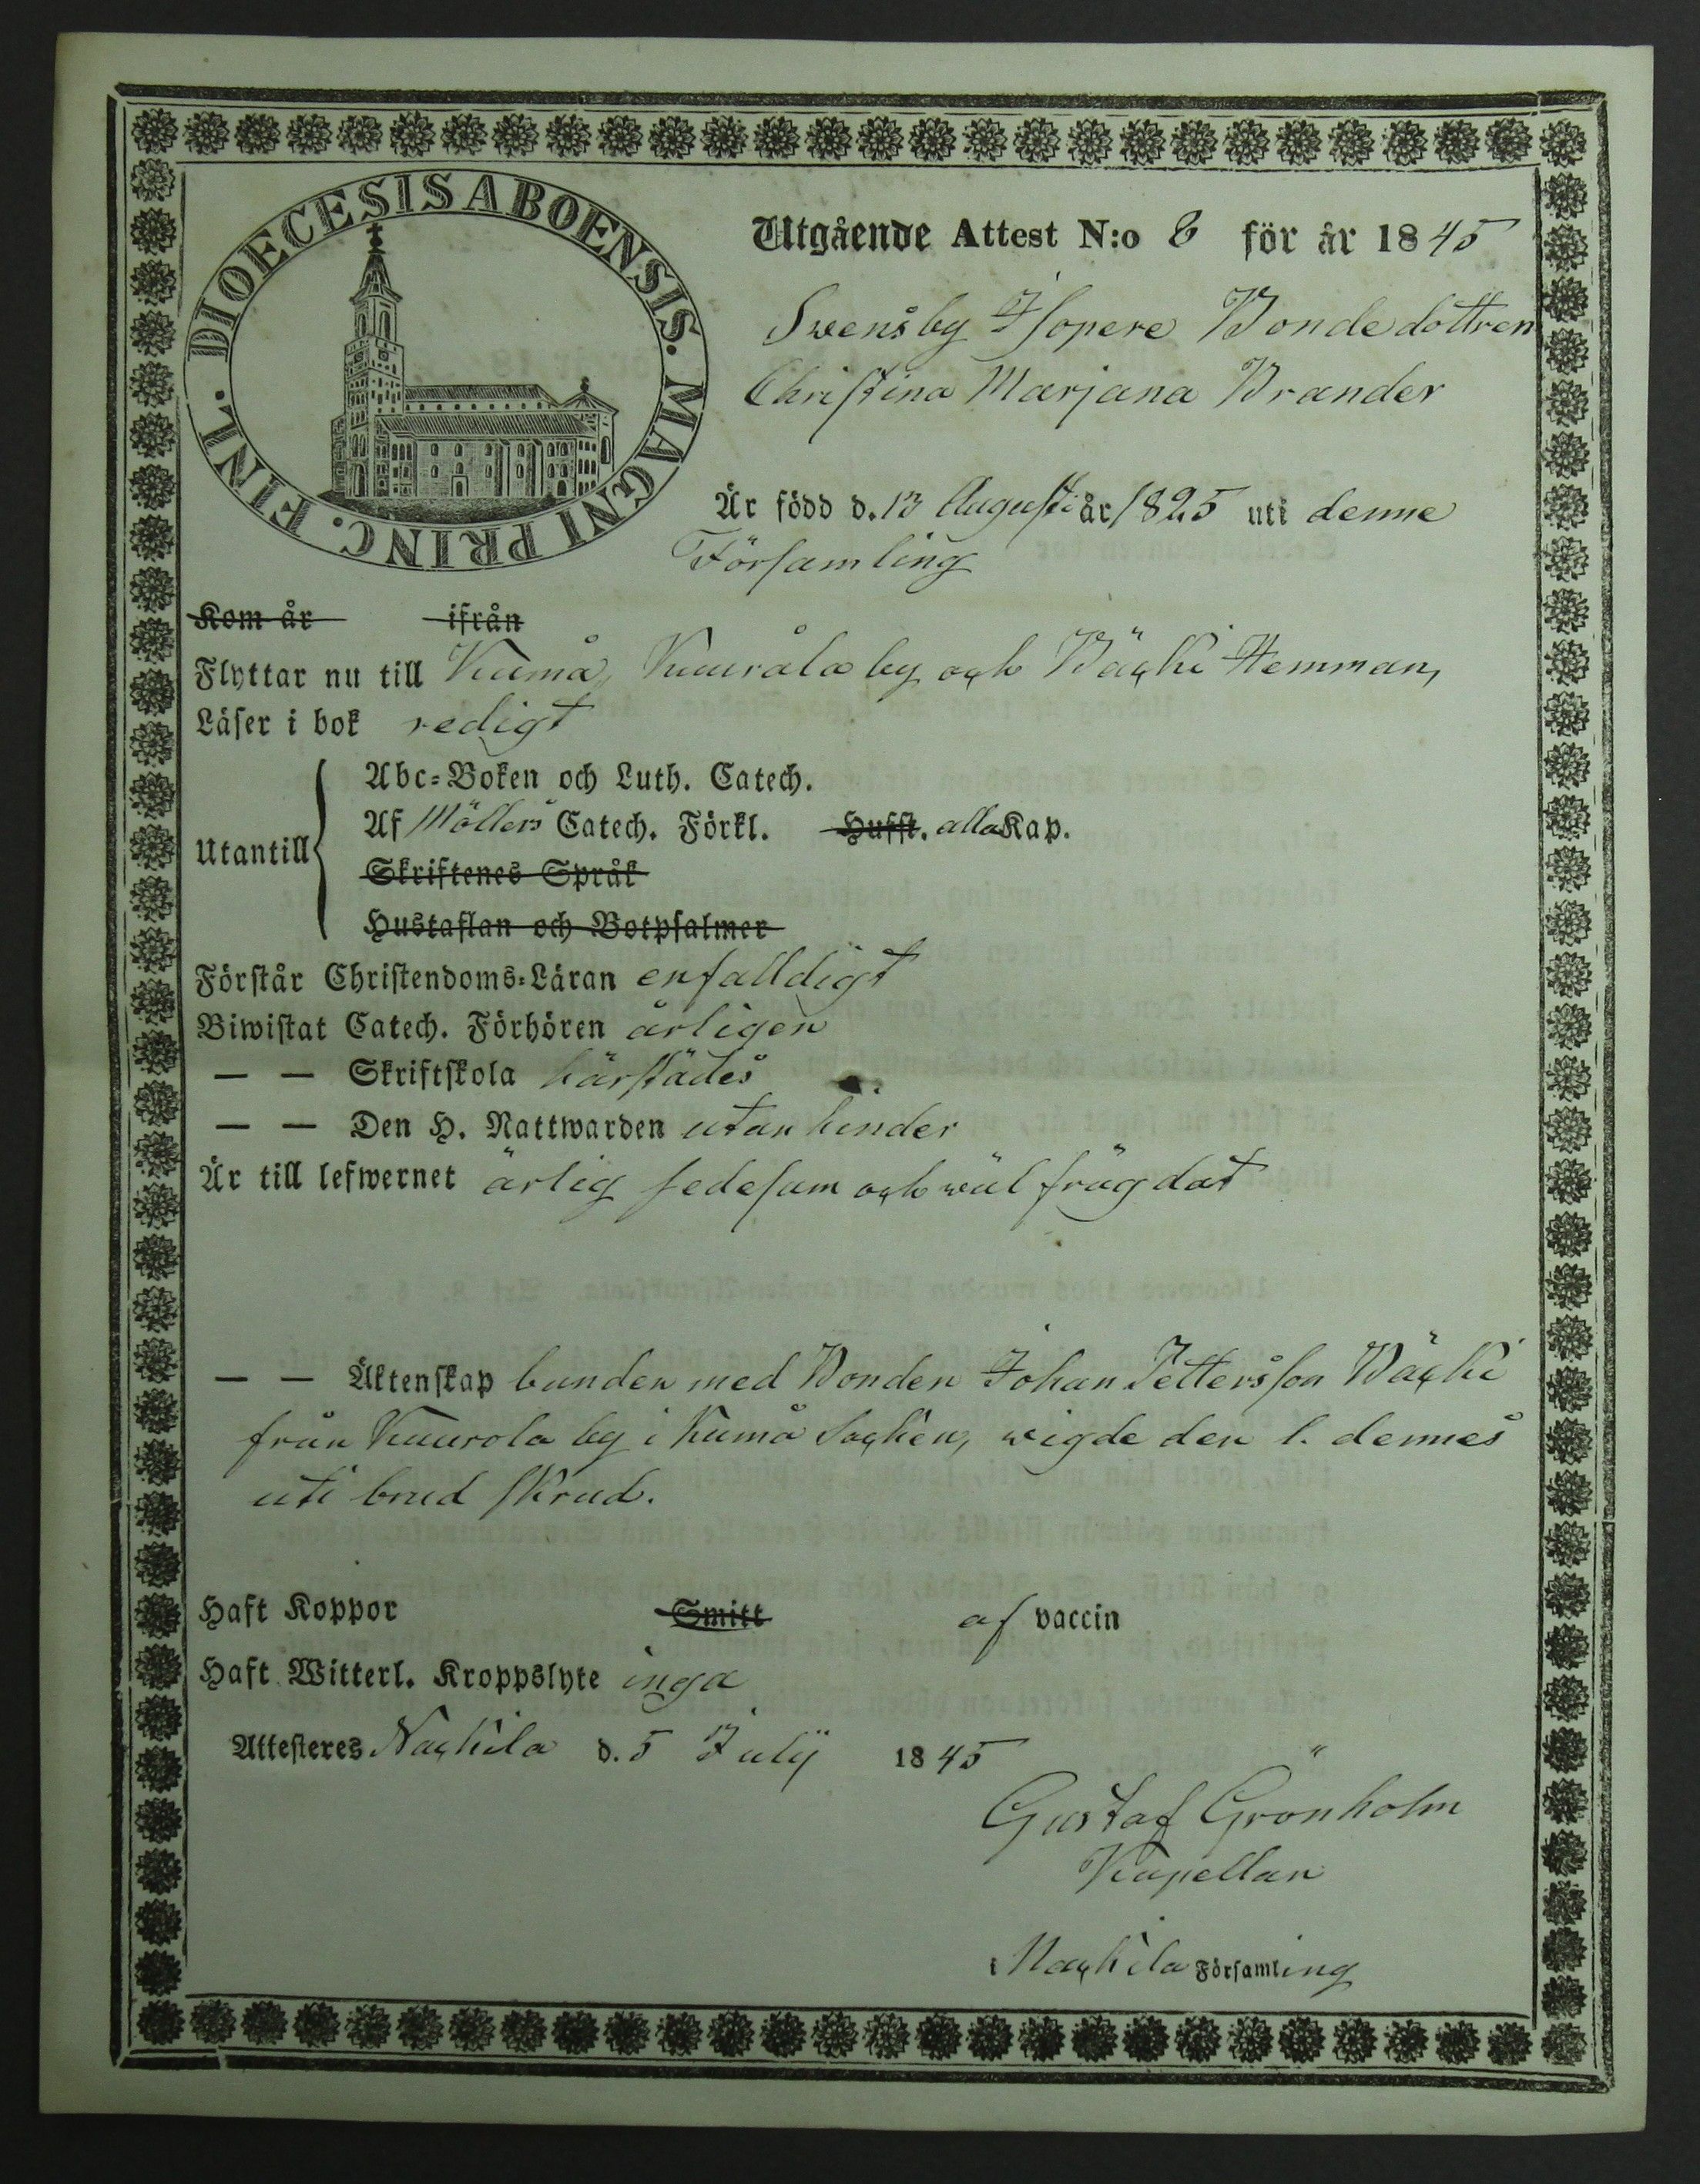 DIOECESIS ABOENSIS. MAGNI PRINC. FINL.
Utgående Attest N:o 8 för år 1845
Swensby Isopere Bondedottren
Christina Marjana Brander
Är född d. 13 Augusti år 1825 uti denne
Församling
Kom år ifrån
Flyttar nu till Kumå, Kuuråla by och Bäcki Hemman,
Läser i bok redigt
Utantill
Abc-Boken och Luth. Catech.
Af Möllers Catech. Förkl. Hufst. alla Kap.
Skriftenes Språk
Hustaflan och Botpsalmer
Förstår Christendoms-Läran enfalldigt
Biwistat Catech. Förhören årligen
— — Skriftskola härstädes
— — Den H. Nattwarden utan hinder
Är till lefwernet ärlig sedesam och wäl frägdat
— — Äktenskap bunden med Bonden Johan Pettersson Bäcki
från Kuurola by i Kumå Socken, wigde den 1. dennes
uti brud skrud.
Haft Koppor Smitt af vaccin
Haft Witterl. Kroppslyte inga
Attesteres Nackila d. 5 July 1845
Gustaf Grönholm
Kapellan
i Nackila Församling